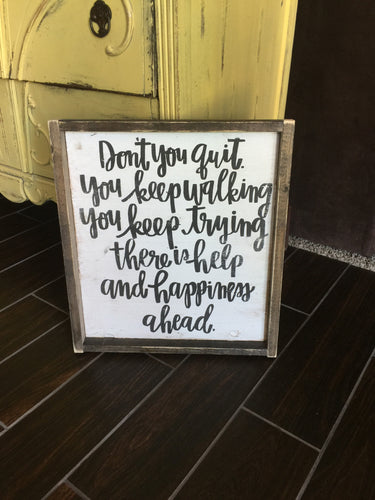 Don't you quit.
You keep walking
you keep trying
there is help
and happiness
ahead.